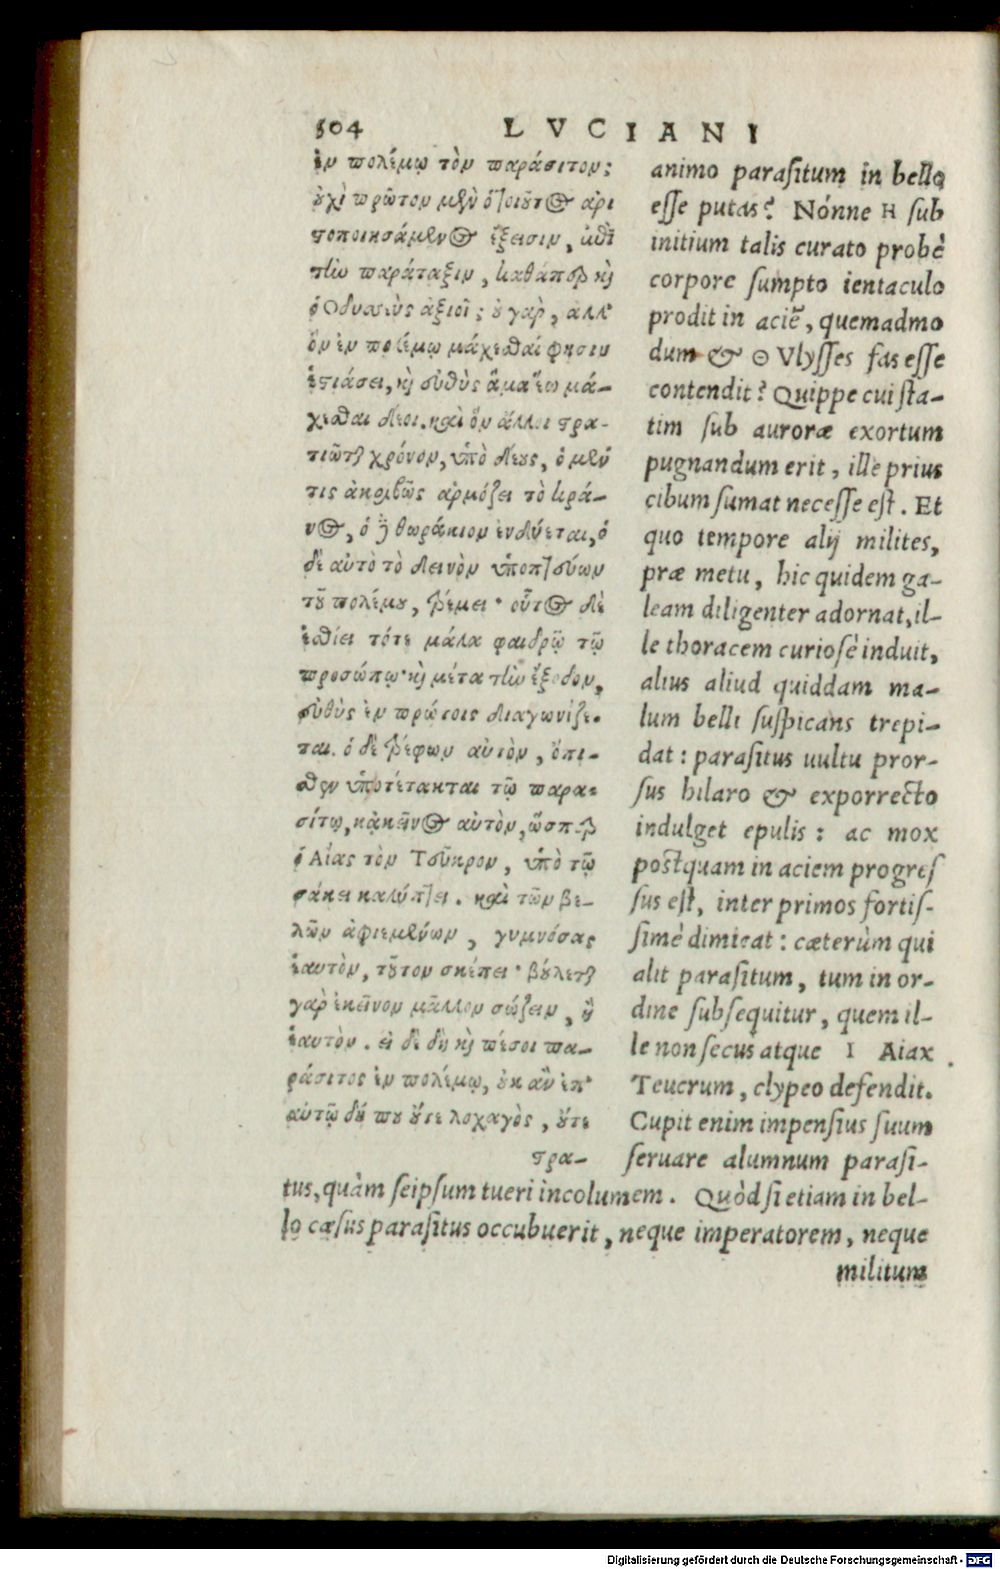 504 LVCIANI
ἐν πολέμῳ τὸν παράσιτον;
ὀυχὶ πρῶτον μὲν ὁ τοιοῦτος ἀρι
στοποιησάμενος ἔξεισιν, ἐπὶ
τὴν παράταξιν, καθάπερ καὶ
ὁ Ὀδυσσεὺς ἀξιοῖ; ὀυ γὰρ, ἀλλ'
ὃν ἐν πολέμῳ μάχεσθαί φησιν
ἑστιάσει, καὶ ἐυθὺς ἅμα ἕῳ μά-
χεσθαι δέοι. καὶ ὃν ἄλλοι στρα-
τιῶται χρόνον, ὑπὸ δέους, ὁ μέν
τις ἀκριβῶς ἁρμόζει τὸ κρά-
νος, ὁ δὲ θωράκιον ἐνδύεται, ὁ
δὲ αὐτὸ τὸ δεινὸν ὑποπτεύων
τοῦ πολέμου, τρέμει· οὗτος δὲ
ἐσθίει τότε μάλα φαιδρῷ τῷ
προσώπῳ· καὶ μέτα τὴν ἔξοδον,
ἐυθὺς ἐν πρώτοις διαγωνίζε-
ται. ὁ δὲ τρέφων αὐτὸν, ὄπι-
σθεν ὑποτέτακται τῷ παρα-
σίτῳ, κἀκεῖνος αὐτὸν, ὥσπερ
ὁ Αἴας τὸν Τεῦκρον, ὑπὸ τῷ
σάκει καλύπτει. καὶ τῶν βε-
λῶν ἀφιεμένων, γυμνόσας
ἑαυτὸν, τοῦτον σκέπει· βούλεται
γὰρ ἐκεῖνον μᾶλλον σώζειν, ἢ
ἑαυτὸν. εἰ δὲ δὴ καὶ πέσοι πα-
ράσιτος ἐν πολέμῳ, ὀυκ ἂν ἐπ'
αὐτῷ δή που ὄυτε λοχαγὸς, ὄυτε
στρα-
animo parasitum in bello
esse putas? Nónne H sub
initium talis curato probè
corpore sumpto ientaculo
prodit in aciẽ, quemadmo
dum & Θ Vlysses fas esse
contendit? Quippe cui sta-
tim sub auroræ exortum
pugnandum erit, ille prius
cibum sumat necesse est. Et
quo tempore alij milites,
præ metu, hic quidem ga-
leam diligenter adornat, il-
le thoracem curiosè induit,
alius aliud quiddam ma-
lum belli suspicans trepi-
dat: parasitus uultu pror-
sus hilaro & exporrecto
indulget epulis: ac mox
postquam in aciem progres
sus est, inter primos fortis-
simè dimicat: cæterùm qui
alit parasitum, tum in or-
dine subsequitur, quem il-
le non secus atque I Aiax
Teucrum, clypeo defendit.
Cupit enim impensius suum
seruare alumnum parasi-
tus, quàm seipsum tueri incolumem. Quòd si etiam in bel-
lo cæsus parasitus occubuerit, neque imperatorem, neque
militum
Digitalisierung gefördert durch die Deutsche Forschungsgemeinschaft - DFG